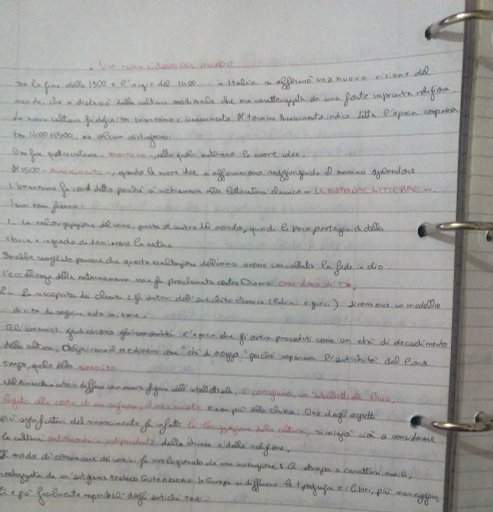 Una nuova visione del mondo
Tra la fine della 1300 e l'inizio del 1400 in Italia si affermò una nuova visione del
mondo, che si distaccò dalla cultura medievale che era caratterizzata da una forte impronta religiosa
La nuova cultura tra umanesimo e rinascimento. Il termine Rinascimento indica tutta l'epoca compresa
tra 1400 e 1500, ma alcuni distinguono:
- Umanesimo -, nella quale maturarono le nuove idee.
Il 1500 - Rinascimento -, quando le nuove idee si affermarono raggiungendo il massimo splendore
L'umanesimo fu così detto perché si richiamava alla letteratura classica - LE HUMANAE LITTERAE -.
I suoi temi furono:
1. La valorizzazione dell'uomo, posto al centro del mondo, quindi lo vuole protagonista della
storia e in grado di dominare la natura
Sarebbe sbagliato pensare che questa esaltazione dell'uomo avesse cancellato la fede in dio.
L'eccellenza della natura umana non fu proclamata contro Dio ma come dono di Dio,
2. La riscoperta dei classici: gli autori dell'antichità classica (latini e greci) divennero un modello
di vita da seguire ed imitare.
Gli umanisti giudicarono l'epoca che gli aveva preceduti come un età di decadimento
della cultura, definirono il medioevo come "età di mezzo" perché separava l'antichità dal loro
tempo, quello della rinascita
Nel Rinascimento si diffuse una nuova figura dell'intellettuale, il cortigiano, un intellettuale laico,
legato alla corte di un signore, e non più alla chiesa. Uno degli aspetti
più significativi del rinascimento fu infatti la laicizzazione della cultura, si iniziò cioè a considerare
la cultura autonoma e indipendente dalla chiesa e dalla religione.
Il modo di comunicare di uomini fu rivoluzionato da una invenzione: la stampa a caratteri mobili,
da un artigiano tedesco Gutenberg. In Europa si diffusero le tipografie e i libri, più maneggevoli
e più facilmente reperibili degli antichi testi.